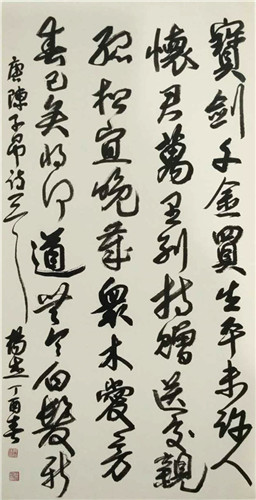 寶劍千金買生平未許人
懷君萬里別持贈送交親
孤松宜晚歲衆木愛芳
春已矣將何道無令白髮新
唐陳子昂詩 楊 丁酉春